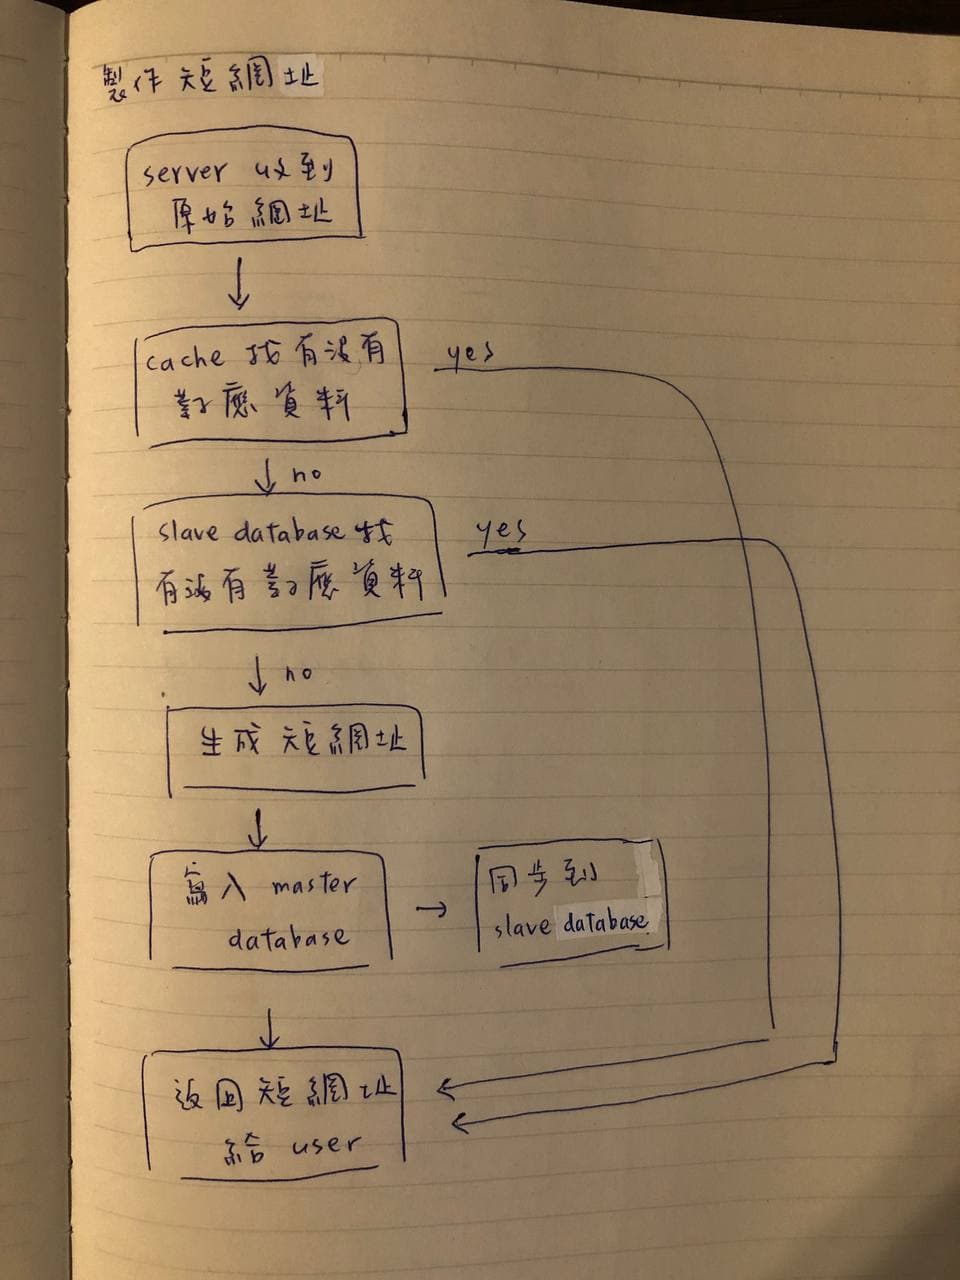 製作短網址
server 收到
原始網址
cache 找有沒有
對應資料
yes
no
slave database 找
有沒有對應資料
yes
no
生成短網址
寫入 master
database
同步到
slave database
返回短網址
給 user